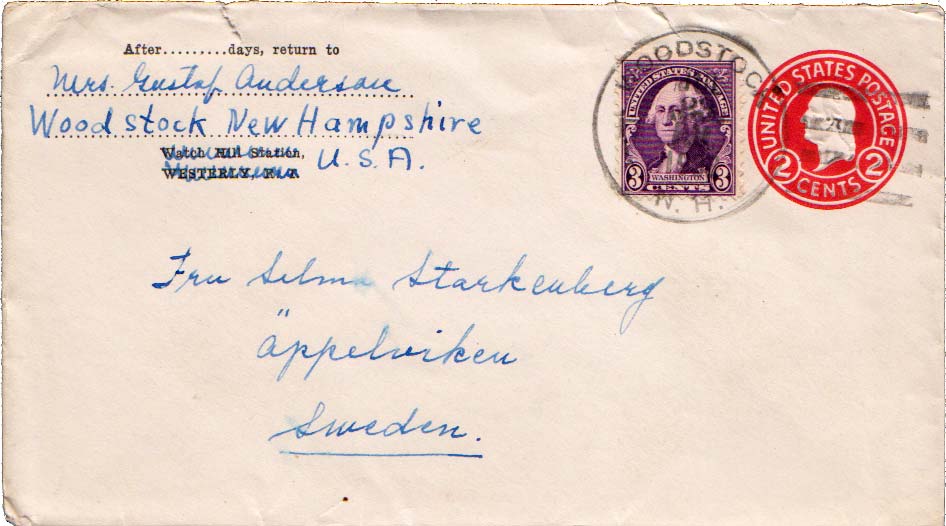 After.........days, return to
Mrs. Gustaf Anderson
Woodstock New Hampshire
Watch Hill Station,
U.S.A.
WESTERLY, R. I.
WOODSTOCK
N. H.
UNITED STATES POSTAGE
WASHINGTON
3 CENTS 3
UNITED STATES POSTAGE
2 CENTS 2
Fru Selma Starkenberg
Äppelviken
Sweden.